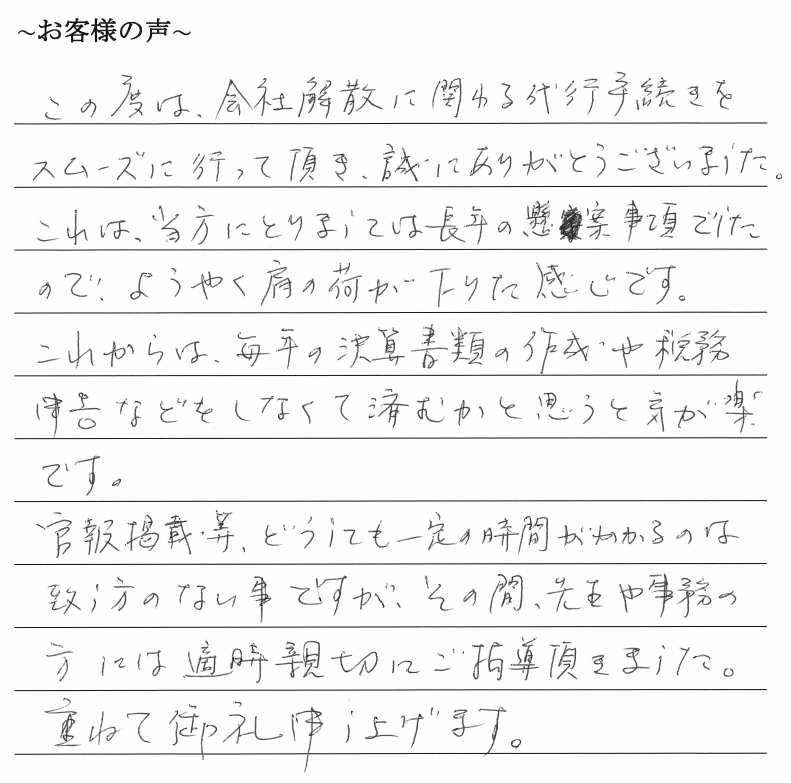 ~お客様の声~
この度は、会社解散に関わる代行手続きを
スムーズに行って頂き、誠にありがとうございました。
これは、当方にとりましては長年の懸案事項でした
ので、ようやく肩の荷が下りた感じです。
これからは、毎年の決算書類の作成や税務
申告などをしなくて済むかと思うと気が楽
です。
官報掲載等、どうしても一定の時間がかかるのは
致し方のない事ですが、その間、先生や事務の
方には適時親切にご指導頂きました。
重ねて御礼申し上げます。